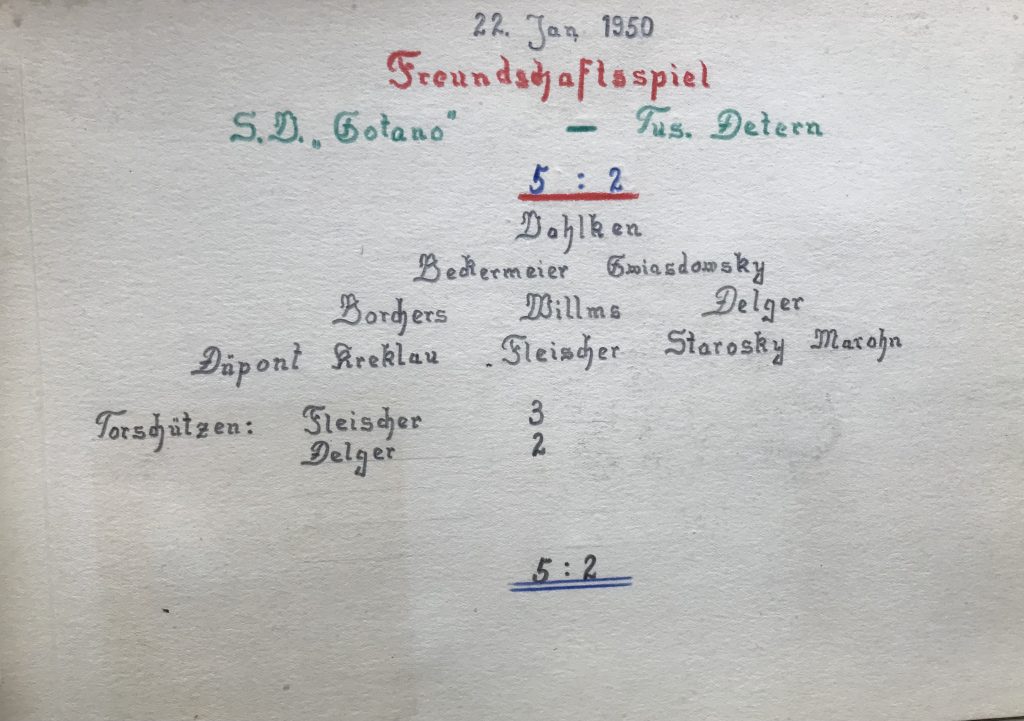 22. Jan. 1950
Freundschaftsspiel
S.V. „Gotano" — Tus. Detern
5 : 2
Dahlken
Beckermeier Gwiasdowsky
Borchers Willms Delger
Düpont Kreklau Fleischer Starosky Marohn
Torschützen: Fleischer 3
Delger 2
5 : 2